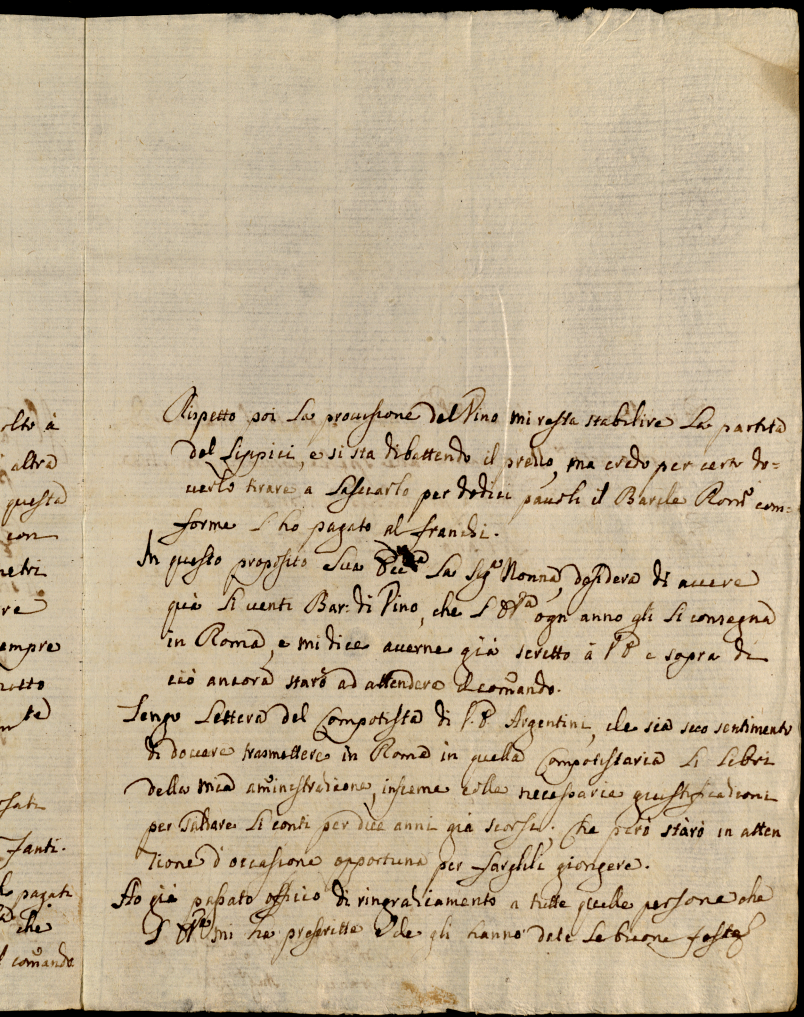 olto à
altra
questa
con
metri
re
empre
notto
te
Fanti.
pagati
che
comando
Rispetto poi La provisione del Vino mi resta stabilire La partita
del Lippici, e si sta dibattendo il prezzo, ma credo per certo do=
verlo tirare a Lasciarlo per dodici pavoli il Barile Rom.o com=
forme L'ho pagato al franchi.
In questo proposito Sua Ecc.a La Sig.a Nonna, desidera di avere
quà Li venti Bar: di Vino, che ogn'anno gli Si consegna
in Roma, e mi dice averne già scritto à V.E. e sopra di
ciò ancora starò ad attendere il comando.
Tengo Lettera del Compotista di V.E. Argentini, che sia seco sentimento
di dovere trasmettere in Roma in quella Compotistaria Li Libri
della mia aministrazione, insieme colle necessarie giustificazioni
per Saldare Li conti per dieci anni già scorsi. Che però starò in atten
zione d'occasione opportuna per farglili giongere.
Ho già passato officio di ringraziamento a tutte quelle persone che
mi ha prescritte e che gli hanno date Le buone feste